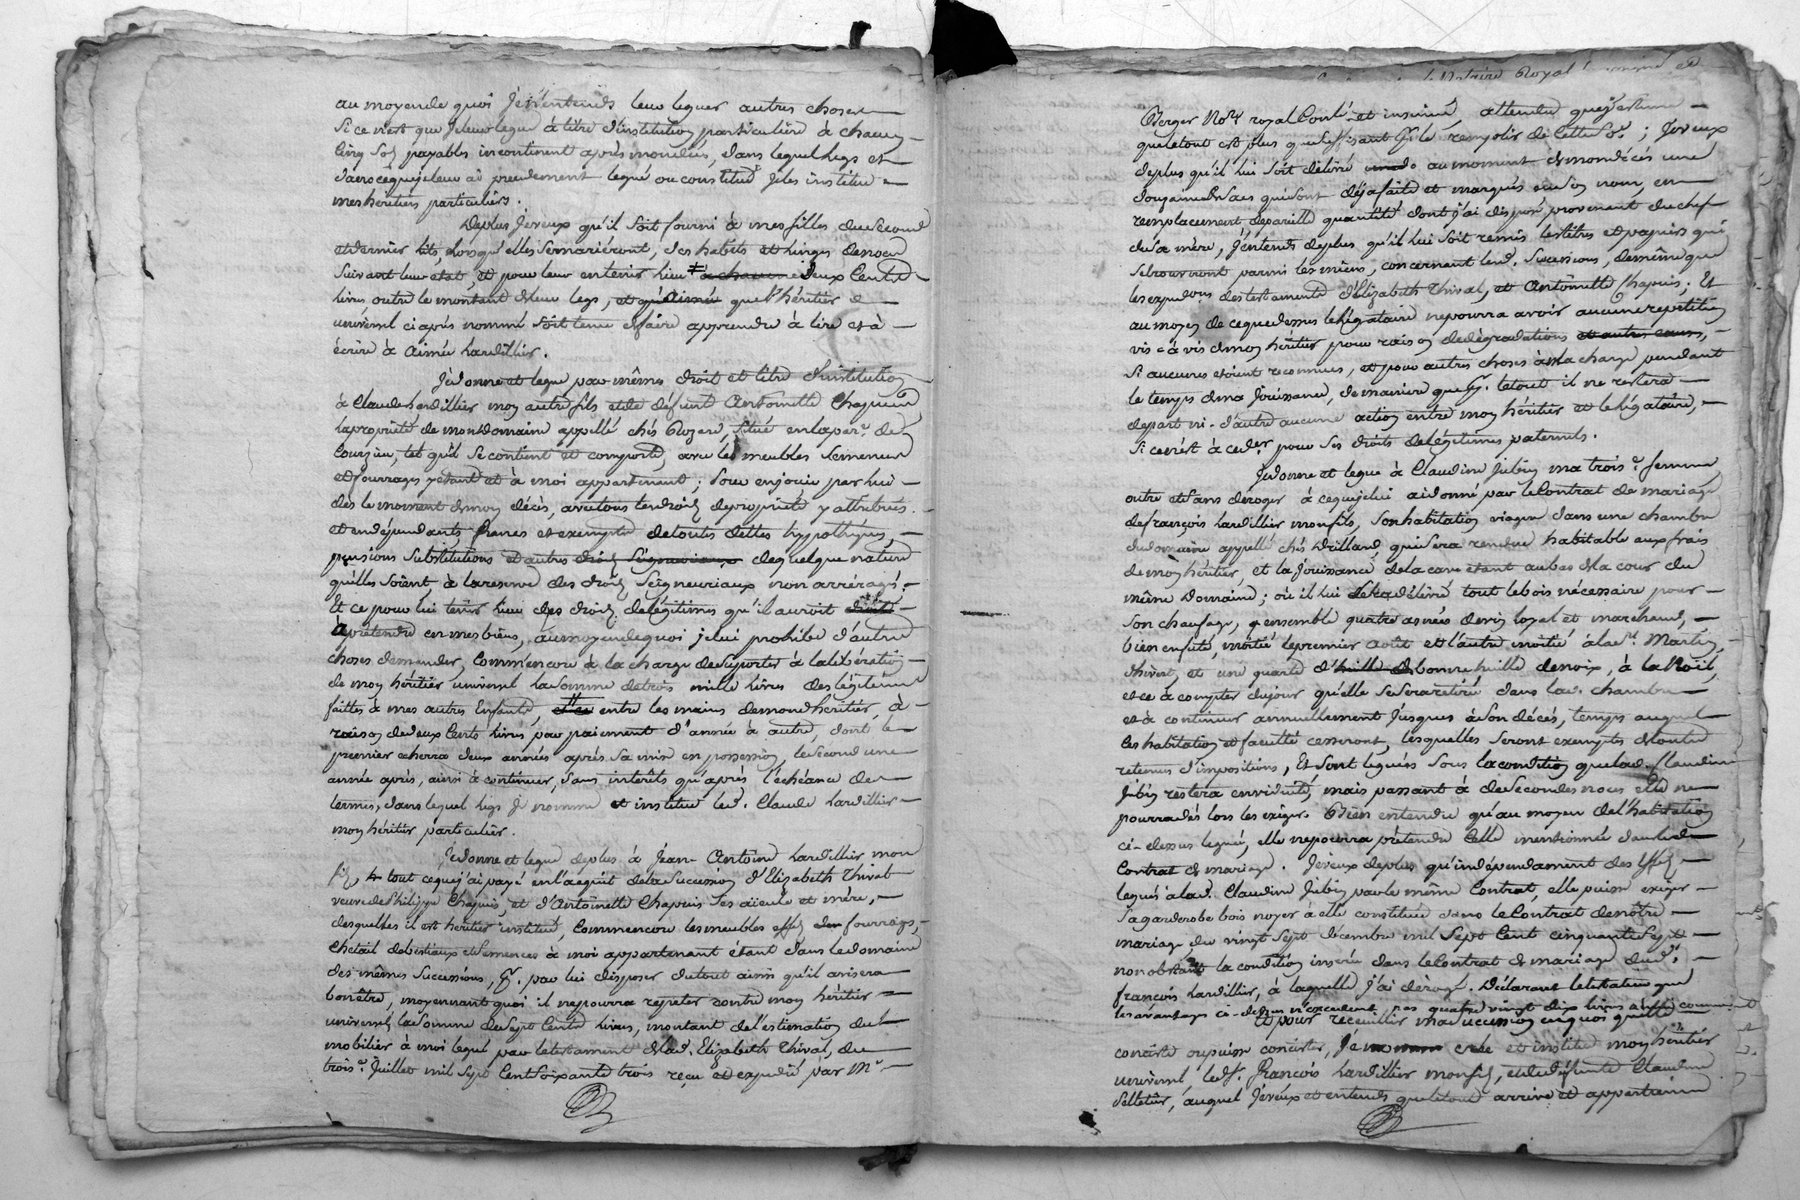 au moyen de quoi J'e n'entends leur leguer autres choses
Si ce n'est que Je leur legue à titre d'institution particulière à chacun
Cinq Sols payables incontinent après mon décès, dans lequel legs et
dans ce que je leur ai précedemment legué ou constitué Je les institue
mes héritiers particuliers.
Deplus Je veux qu'il soit fourni à mes filles du second
et dernier lits, lorsqu'elles se mariéront, des habits et linges de noce
suivant leur état, et pour leur en tenir lieu deux Cents
livres outre le montant de leur legs, que l'héritier
universel ci après nommé fasse apprendre à lire et à
écrire à Aimée hardillier.
Je donne et legue par mêmes droit et titre d'institution
à Claude hardillier mon autre fils et de défunte Antoinette Chapuis
la propriété de mon domaine appellé chés Rozard, situé en la par.e de
Courzieu, tel qu'il se contient et comporte, avec les meubles semences
et fourrages y étant et à moi appartenant ; pour en jouir par lui
dès le moment de mon décès, avec tous les droits de propriété y attribués
et en dépendants, francs et exempts de toutes dettes hypothèques,
pensions substitutions et autres droits seigneuriaux de quelque nature
qu'elles soient à la reserve des droits seigneuriaux non arréragés
Et ce pour lui tenir lieu des droits de légitimes qu'il auroit droit
à prétendre en mes biens, au moyen de quoi je lui prohibe d'autre
choses demander, Comm'encore à la charge de supporter à la libération
de mon héritier universel la somme de trois mille livres des légitimes
faittes à mes autres Enfants, entre les mains de mond héritier, à
raison de deux Cents livres par paiement d'année à autre, dont le
premier écherra deux années après sa mise en possession, le second une
année après, ainsi à continuer, sans intérêts qu'après l'échéance des
termes, dans lequel legs je nomme et institue led. Claude hardillier
mon héritier particulier.
Je donne et legue deplus à Jean-Antoine hardillier mon
fils, tout ce que j'ai payé en l'acquit de la succession d'Elizabeth Thivel
veuve de Philippe Chapuis, et d'Antoinette Chapuis ses aïeule et mère,
desquelles il est héritier institué, Comm'encore les meubles effets fourrages,
cheptail de bestiaux et semences à moi appartenant étant dans le domaine
des mêmes successions, pr. par lui disposer du tout ainsi qu'il avisera
bon être, moyennant quoi il ne pourra repéter contre mon héritier
universel la somme de sept Cents livres, montant de l'estimation du
mobilier à moi legué par le testament de lad. Elizabeth Thivel, du
trois.e Juillet mil sept Cent soixante trois reçu et expédié par M.e
Notaire Royal
Berger No.re royal Contrôlé et insinué, attendu que j'estime
que le tout est plus que suffisant pr. le remplir de cette so.e ; Je veux
deplus qu'il lui soit délivré au moment de mon décès une
douzaine de sacs qui sont déja faits et marqués en son nom, en
remplacement de pareille quantité dont j'ai disposé provenant du chef
de sa mère, J'entends deplus qu'il lui soit remis les titres et papiers qui
se trouvront parmi les miens, concernant led. successions, de même que
les expeditions des testaments d'Elizabeth Thival, et Antoinette Chapuis ; Et
au moyen de ce que dessus le légataire ne pourra avoir aucune repetition
vis à vis de mon héritier pour raison de dégradations et autres causes,
si aucunes étoient reconnues, et pour autres choses à ma charge pendant
le temps de ma jouissance, de manière que pr. le tout il ne restera
de part ni d'autre aucune action entre mon héritier et le légataire,
si ce n'est à ce d.er pour ses droits de légitimes paternels.
Je donne et legue à Claudine Jubin ma trois.e femme
outre et sans déroger à ce que je lui ai donné par le Contrat de mariage
de françois hardillier mon fils, son habitation viagere dans une chambre
du domaine appellé chés Drilland, qui sera rendue habitable aux frais
de mon héritier, et la jouissance de la cave étant au bas de la cour du
même domaine ; où il lui sera délivré tout le bois nécessaire pour
son chaufage, ensemble quatre asnées de vin loyal et marchand,
bien enfuté, moitié le premier août et l'autre moitié à la s.t Martin
d'hiver, et une quarte d'huille de bonne huille de noix, à la Noël,
et ce à compter du jour qu'elle se sera retirée dans lad. chambre
et à continuer annuellement jusques à son décés, temps auquel
les habitation et faculté cesseront, lesquelles seront exempts de toute
retenues d'impositions, Et sont legués sous la condition que lad. Claudine
Jubin restera en viduité, mais passant à de secondes noces elle ne
pourra dès lors les exiger. Bien entendu qu'au moyen de l'habitation
ci-dessus leguée, elle ne pourra prétendre celle mentionnée dans led
Contrat de mariage. Je veux deplus qu'indépendament des effets
legués à lad. Claudine Jubin, par le même Contrat, elle puisse exiger
sa garderobe bois noyer à elle constituée dans le Contrat de nôtre
mariage du vingt sept décembre mil sept Cent cinquante sept
nonobstant la condition inserée dans le Contrat de mariage dud.
françois hardillier, à laquelle j'ai dérogé. Déclarant le testateur que
les avantages ci-dessus n'excedent pas quatre vingt dix livres
Et pour recueillir ma succession en quoi qu'elle
consiste ou puisse consister, Je crée et institue mon héritier
universel, led. françois hardillier mon fils, et de défunte Claudine
Pelletier, auquel Je veux et entends que le tout arrive et appartienne